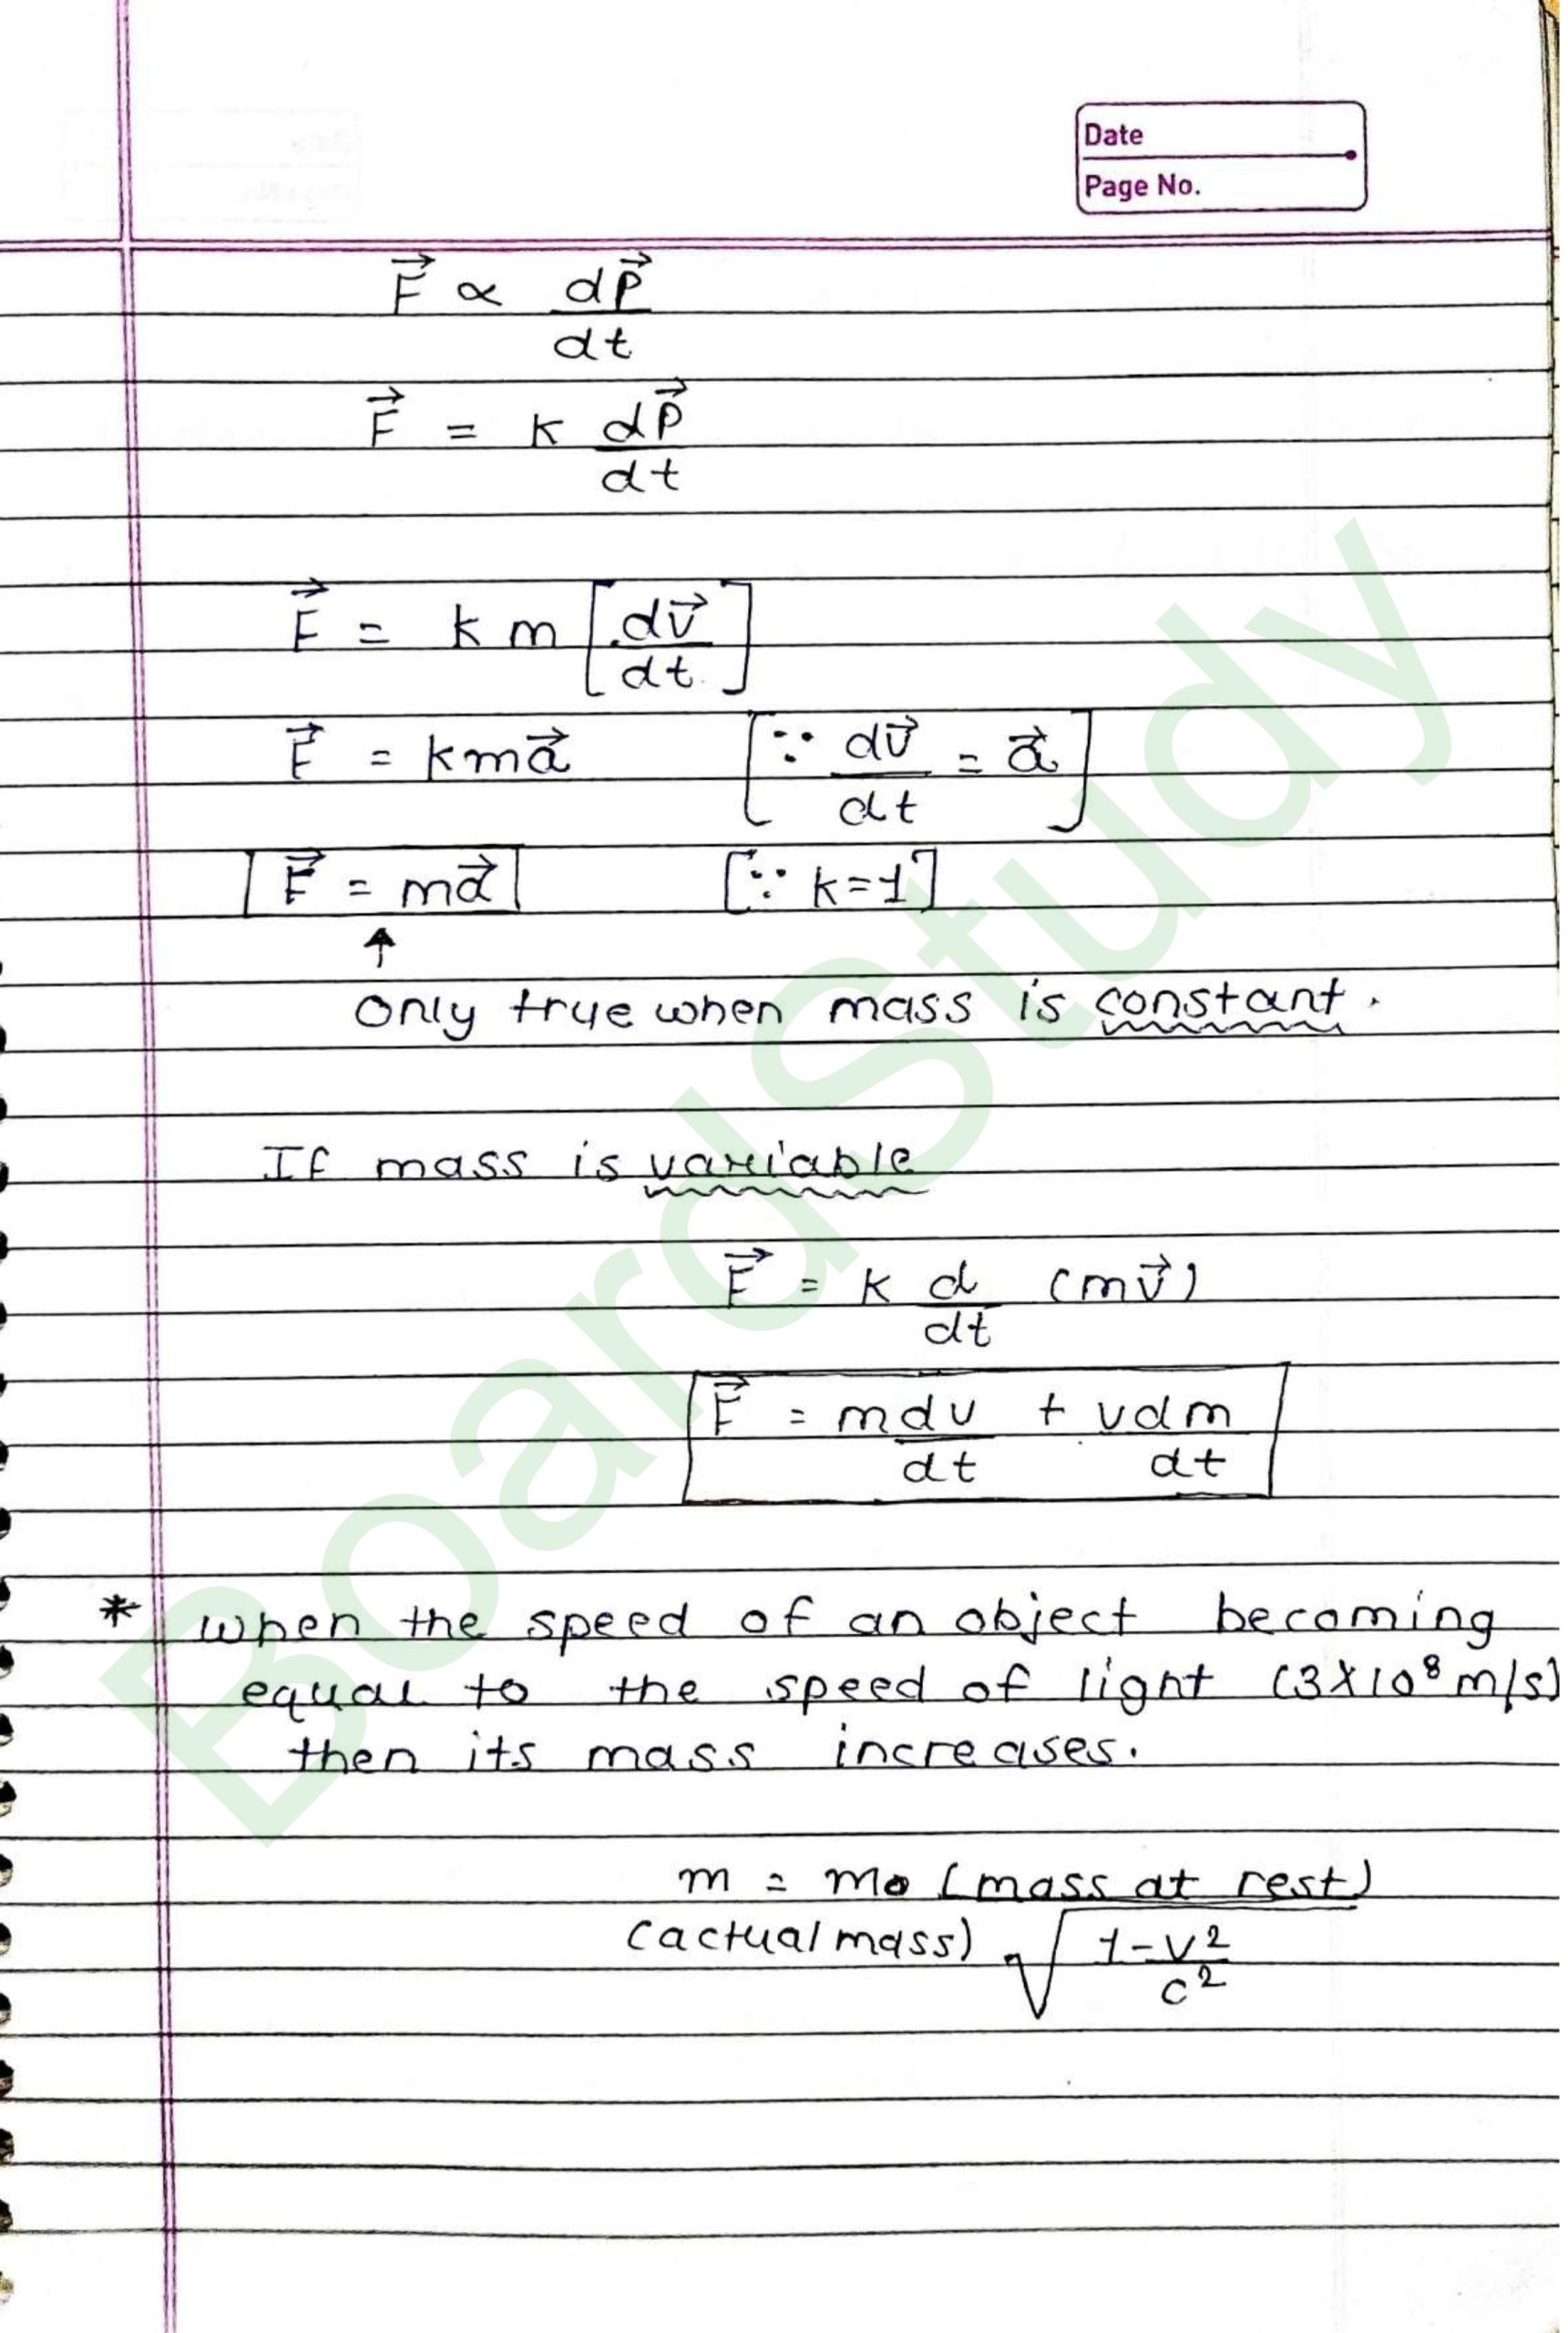 Date
Page No.
F⃗ ∝ dP⃗/dt
F⃗ = K dP⃗/dt
F⃗ = k m [dv⃗/dt]
F⃗ = kma⃗ [∵ dv⃗/dt = a⃗]
F⃗ = ma⃗ [∵ k=1]
↑
Only true when mass is constant.
If mass is variable
F⃗ = K d/dt (mv⃗)
F⃗ = mdv/dt + vdm/dt
* When the speed of an object becoming
equal to the speed of light (3×10⁸ m/s)
then its mass increases.
m = m₀ (mass at rest)
(actual mass) √1-v²/c²
BoardStudy